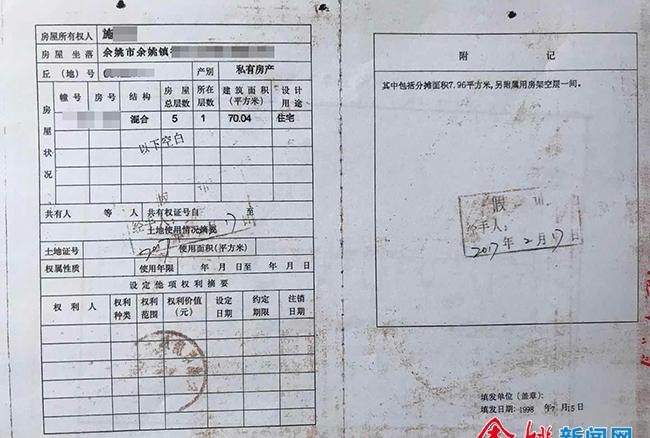 房屋所有权人 施
房屋坐落 余姚市余姚镇
丘(地)号 产别 私有房产
房屋状况
幢号 房号 结构 房屋总层数 所在层数 建筑面积(平方米) 设计用途
混合 5 1 70.04 住宅
以下空白
共有人 等 人 共有权证号自 至
土地使用情况摘要
土地证号 使用面积(平方米)
权属性质 使用年限 年 月 日至 年 月 日
设定他项权利摘要
权利人 权利种类 权利范围 权利价值(元) 设定日期 约定期限 注销日期
附 记
其中包括分摊面积7.96平方米,另附属用房架空层一间。
假
经手人:
2017年2月17日
填发单位(盖章):
填发日期:1998 年7月15日
余姚新闻网